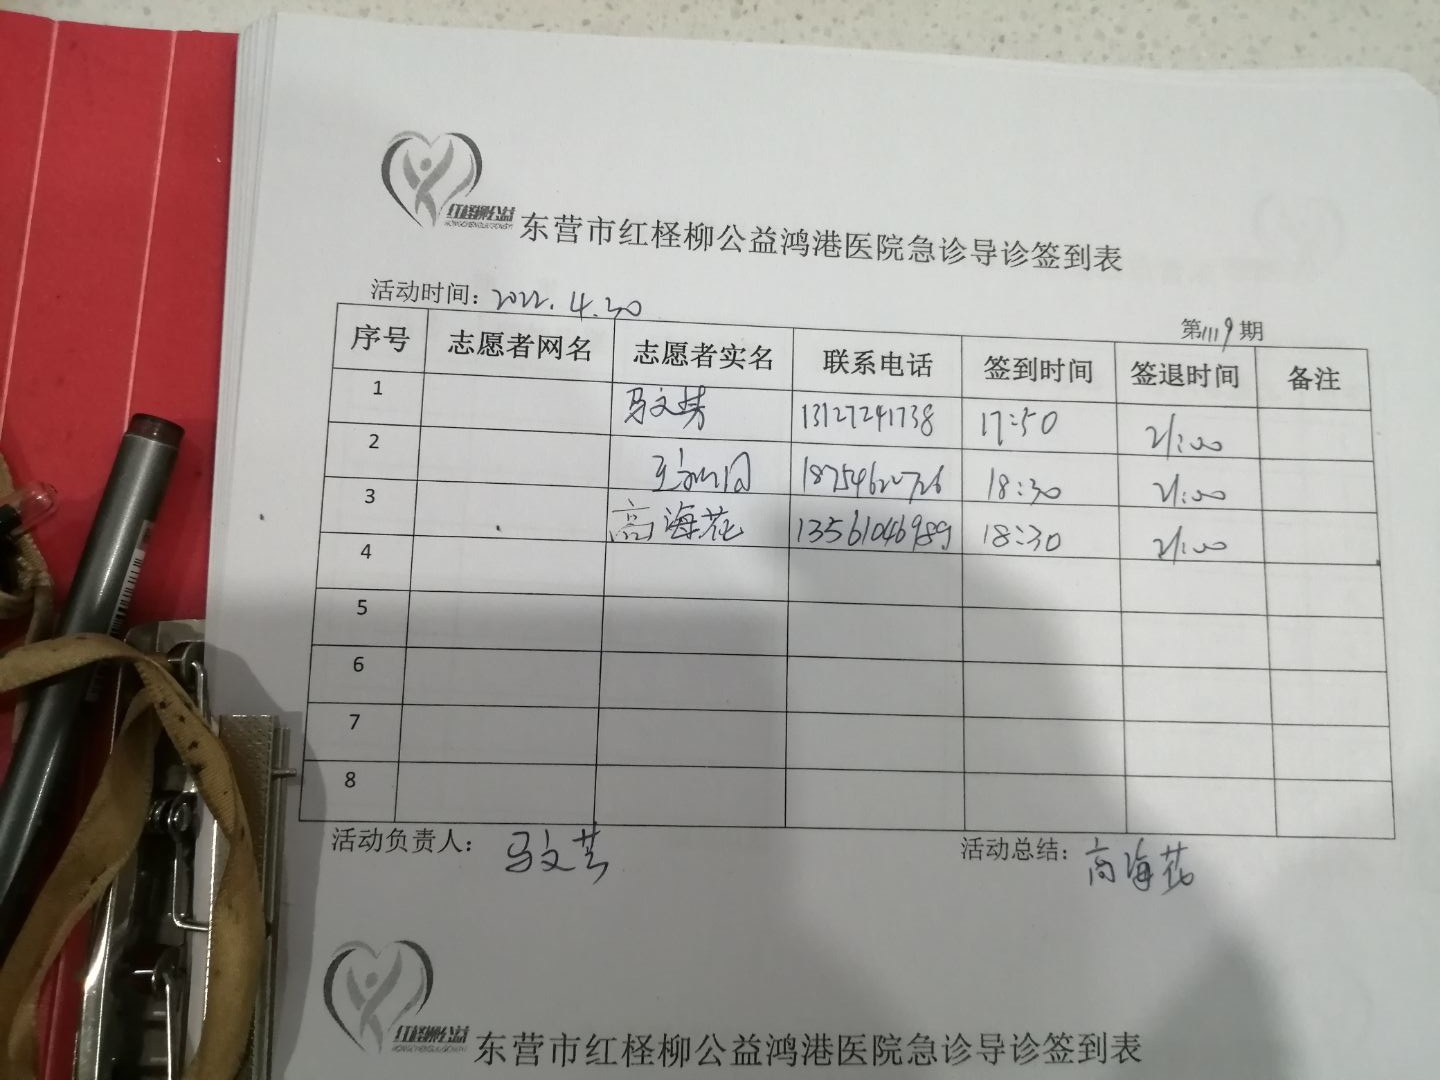 红柽柳公益
东营市红柽柳公益鸿港医院急诊导诊签到表
活动时间：2022.4.30
第1119期
序号 志愿者网名 志愿者实名 联系电话 签到时间 签退时间 备注
1 马文芸 13127241738 17:50 21:00
2 18754620726 18:30 21:00
3 高海花 13561046989 18:30 21:00
4
5
6
7
8
活动负责人：马文芸
活动总结：高海花
红柽柳公益
东营市红柽柳公益鸿港医院急诊导诊签到表